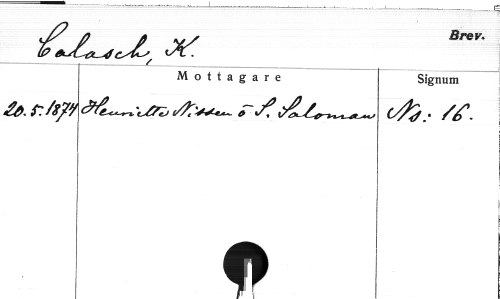 Brev.
Calasch, K.
Mottagare Signum
20.5.1874 Henriette Nissen o S. Saloman Ns: 16.